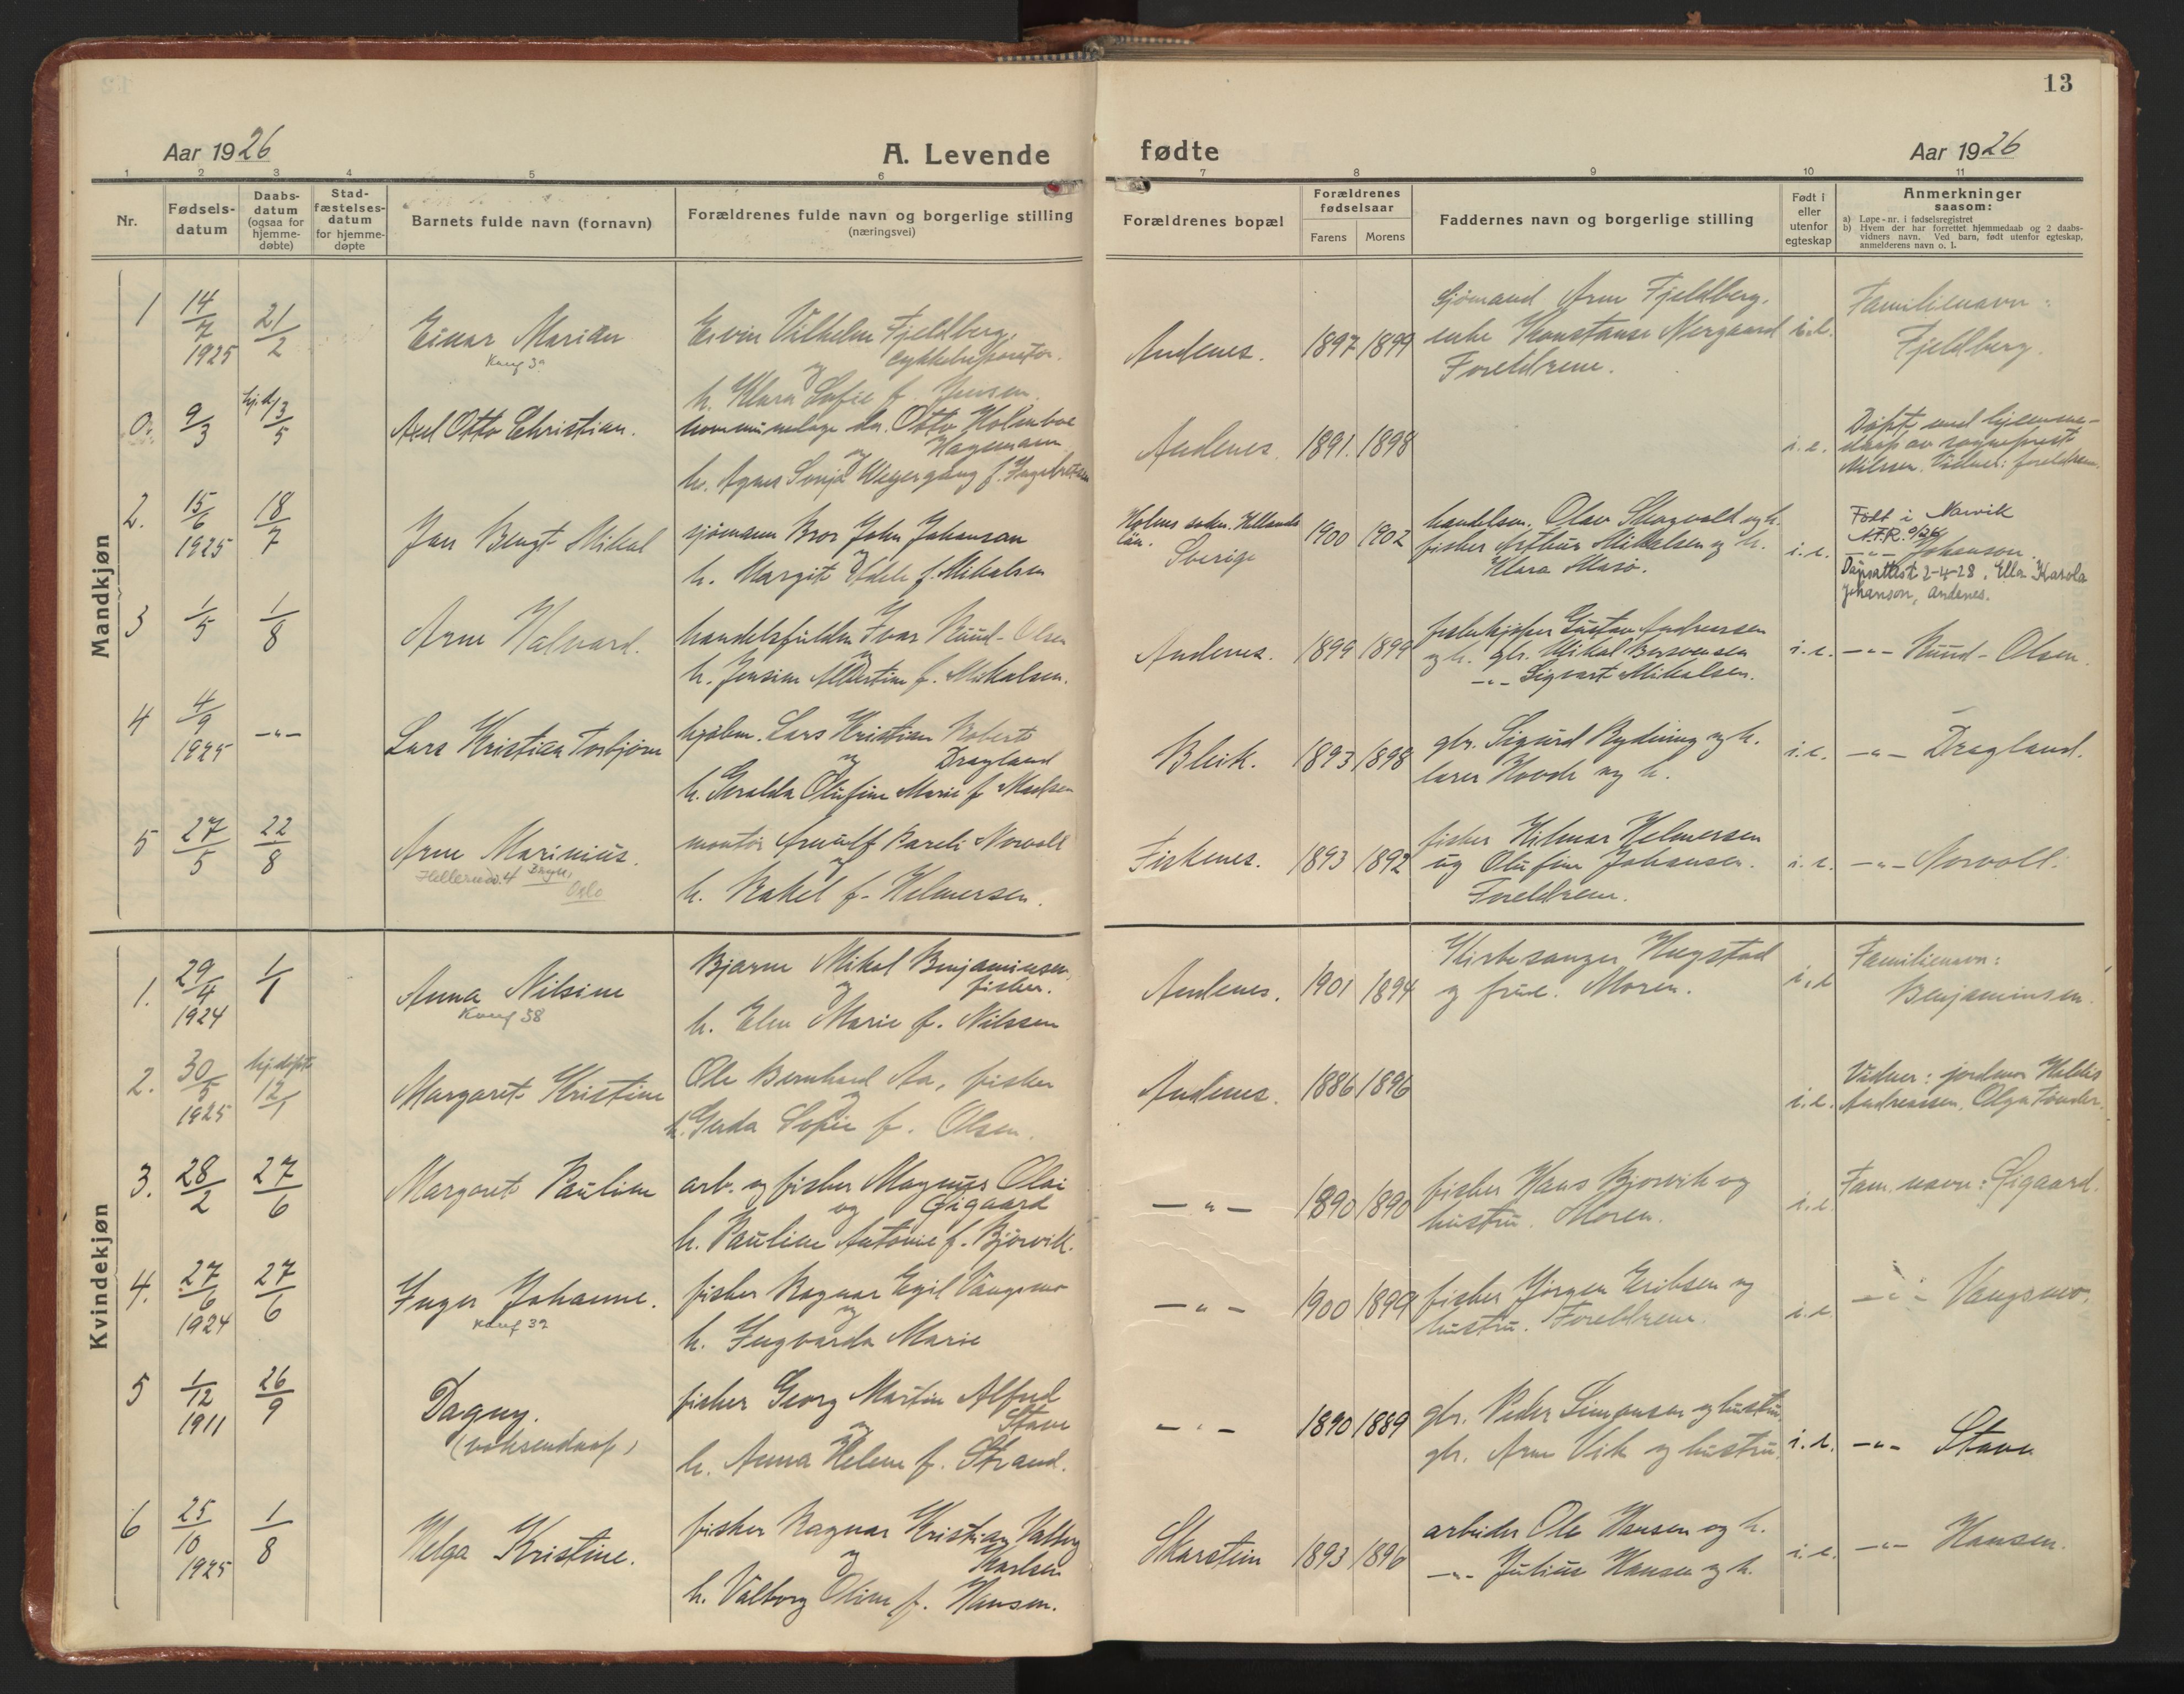 13
Aar 1926
A. Levende
fødte
Aar 1926
1 2 3 4 5 6 7 8 9 10 11
Nr.
Fødsels-
datum
Daabs-
datum
(ogsaa for
hjemme-
døbte)
Stad-
fæstelses-
datum
for hjemme-
døpte
Barnets fulde navn (fornavn)
Forældrenes fulde navn og borgerlige stilling
(næringsvei)
Forældrenes bopæl
Forældrenes
fødselsaar
Farens Morens
Faddernes navn og borgerlige stilling
Født i
eller
utenfor
egteskap
Anmerkninger
saasom:
a) Løpe-nr. i fødselsregistret
b) Hvem der har forrettet hjemmedaab og 2 daabs-
vidners navn. Ved barn, født utenfor egteskap,
anmelderens navn o. l.
Mandkjøn
1
14/7
1925
21/2
Einar Marian
Eivin Vilhelm Fjeldberg,
og
h. Klara Sofie f. Jensen.
Andenes.
1897 1899
Sjømand Arne Fjeldberg.
enke Konstanse Norgaard
Foreldrene.
i.e.
Familienavn:
Fjeldberg.
0.
9/3
hj.d. 13/5
Axel Otto Christian.
kommunelæge Otto Holmboe
Hagemann
og
h. Agnes Sonja f. Ingebretsen
Andenes.
1891. 1898
i.e.
Døpt ved hjemme-
daap av sogneprest
Nilssen. Vidner: foreldrene.
2.
15/6
1925
18/7
Jan Bengt Mikal
sjømann Bror John Johanson
og
h. Margit Adele f. Mikalsen
Holms sokn. Hallands
län.
Sverige
1900 1902
handelsm. Olav Skogvold og h.
fisker Arthur Mikalsen og h.
Klara Masø.
i.e.
Født i Narvik
N.F.R. 9/26
-"- Johanson.
Dåpsattest 2-4-28, Ella Karola
Johanson, Andenes.
3
1/5
1/8
Arne Halvard.
Ivar Ruud-Olsen
og
h. Jensine Albertine f. Mikalsen.
Andenes.
1899 1899
fiskekjøper Gustav Andreassen
og h. gbr. Mikal Berntsen
-"- Sigvart Mikalsen.
i.e.
-"- Ruud-Olsen.
4
4/9
1925
-"-
Lars Kristian Torbjørn
Lars Kristian Robert
Dragland
og
h. Geralda Olufine Marie f. Madsen
Bleik.
1893 1898
gbr. Sigurd Rydning og h.
lærer Hovde og h.
i.e.
-"- Dragland.
5
27/5
22/8
Arne Marinius.
Oslo
montør Arnulf Bareli Norvoll
og
h. Rakel f. Helmersen.
Fiskenes.
1893 1892
fisker Hilmar Helmersen
og Olufine Johansen.
Foreldrene.
i.e.
-"- Norvoll.
Kvindekjøn
1.
29/4
1924
1/1
Anna Nilsine
Konf 38
Bjarne Mikal Benjaminsen,
fisker.
og
h. Elen Marie f. Nilssen
Andenes.
1901 1894
Kirkesanger Hugstad
og frue. Moren.
i.e
Familienavn:
Benjaminsen.
2.
30/5
1925
hj.døpt
12/1
Margaret Kristine
Ole Bernhard Aa, fisker
og
h. Gerda Sofie f. Olsen.
Andenes.
1886 1896
i.e.
Vidner: jordmor Heldis
Andreassen, Olga Tønder.
3.
28/2
27/6
Margaret Pauline
arb. og fisker Magnus Olai
og Øigaard
h. Pauline Antonie f. Bjørvik.
-"-
1890 1890
fisker Hans Bjørvik og
hustru. Moren.
i.e.
Fam.navn: Øigaard.
4.
27/6
1924
27/6
Inger Johanne.
Konf 39
fisker Ragnar Egil Vangsmo
og
h. Ingvarda Marie
-"-
1900 1899
fisker Jørgen Eriksen og
hustru. Foreldrene.
i.e.
-"- Vangsmo.
5
1/12
1911
26/9
Dagny.
(voksendaap)
fisker Georg Martin Alfred
Stave
og
h. Anna Helene f. Strand.
-"-
1890 1889
gbr. Peder Simonsen og hustru.
gbr. Arne Vik og hustru.
i.e.
-"- Stave
6
25/10
1925
1/8
Helga Kristine.
fisker Ragnar Kristian Valberg
og Karlsen
h. Valborg Oline f. Hansen.
Skarstein
1893 1896
arbeider Ole Hansen og h.
-"- Julius Hansen og h.
i.e.
-"- Hansen.